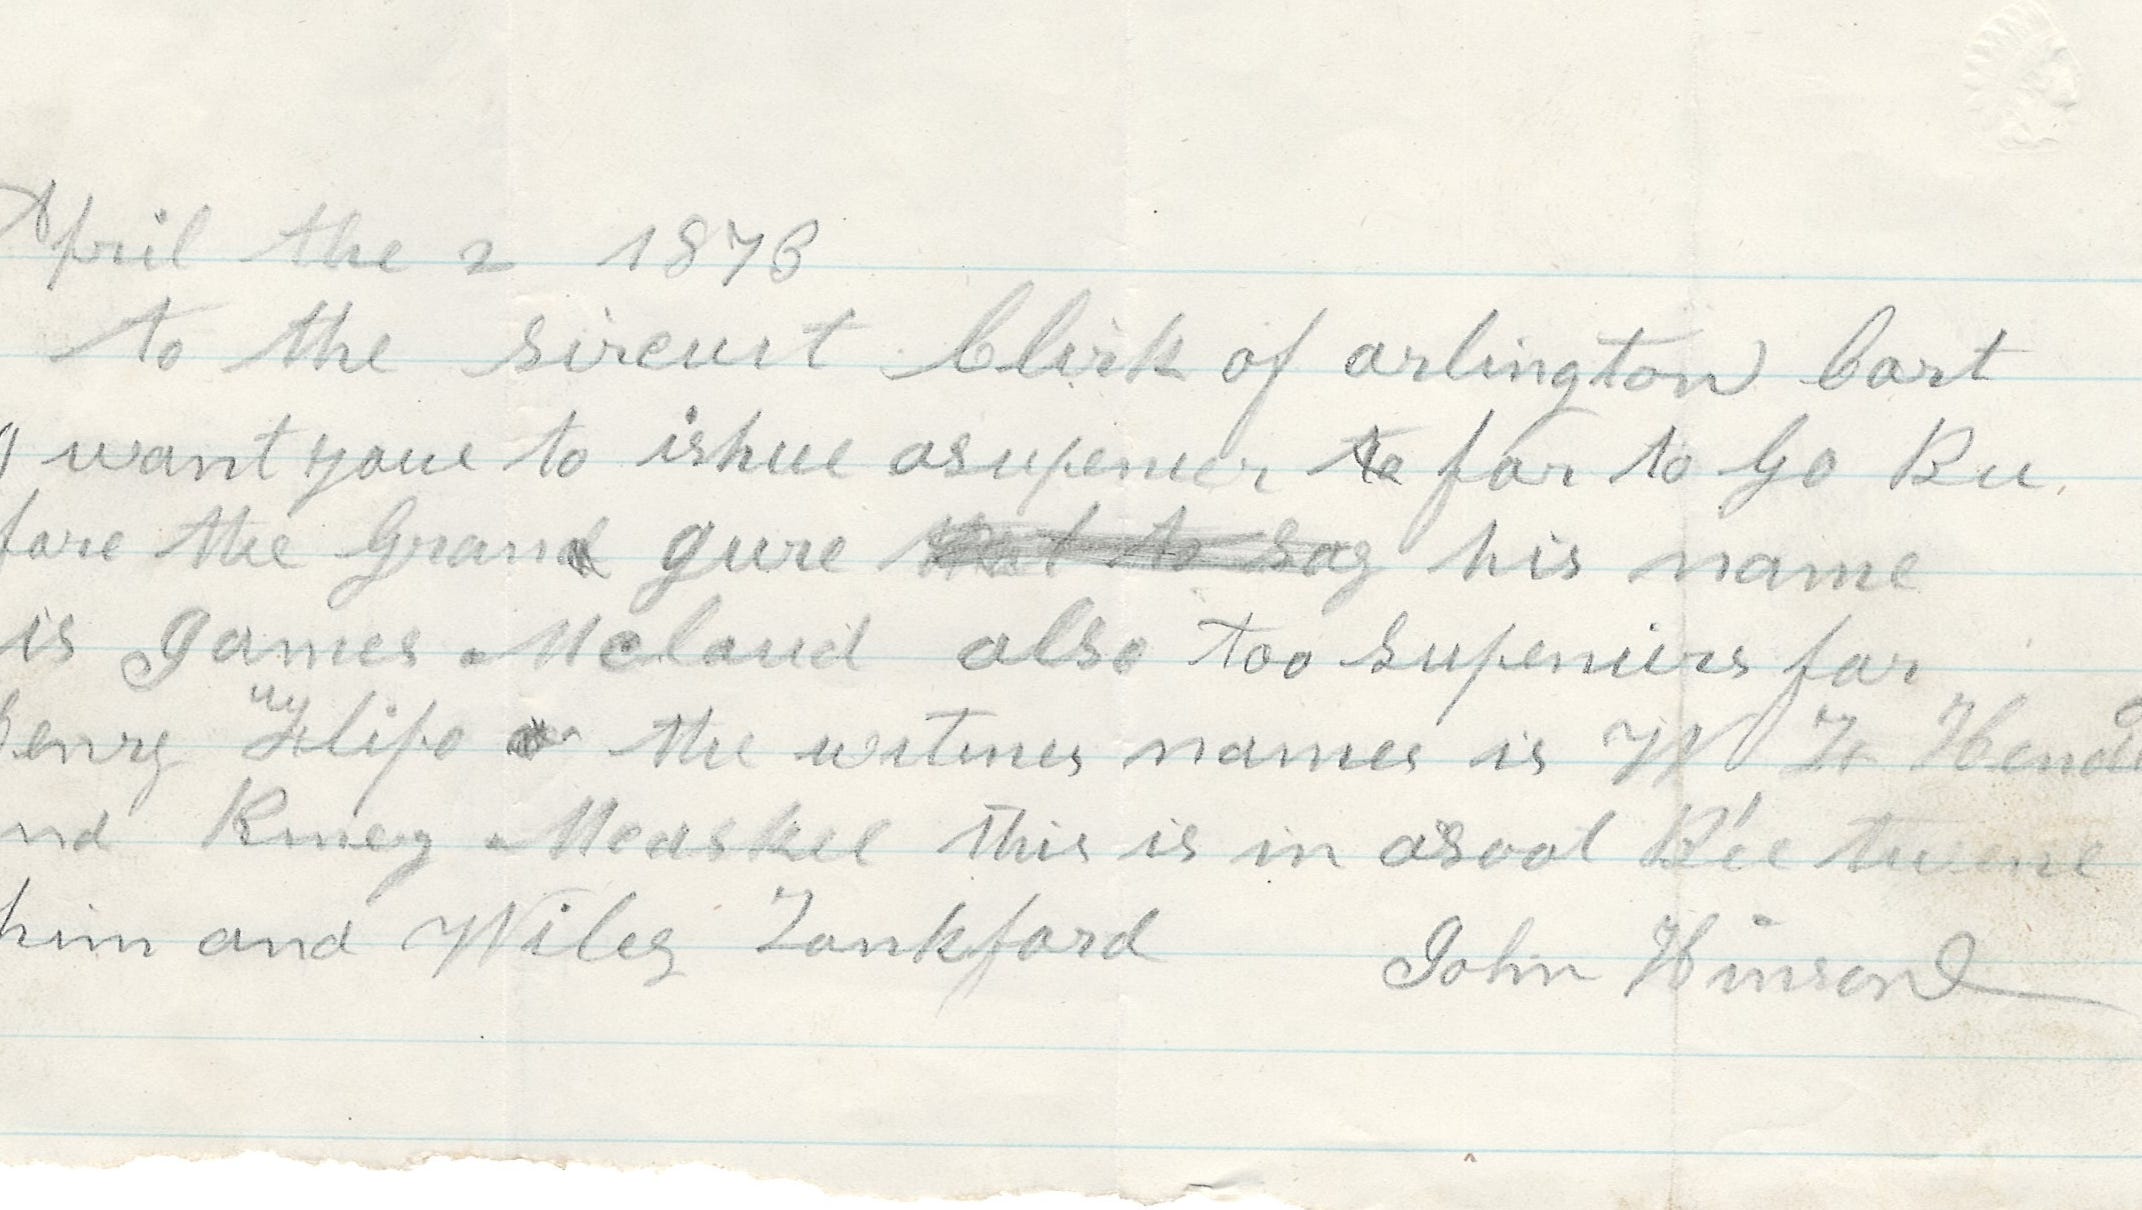 April the 2 1876
to the sircuit Clirk of arlington Cort
I want youe to ishue asupener for to Go Be
fore the Grand gure his name
is James Mcloud also too supeniers for
henry the witnes names is W
and this is in asoot Bee twene
him and Wiley Lankford John Hinson